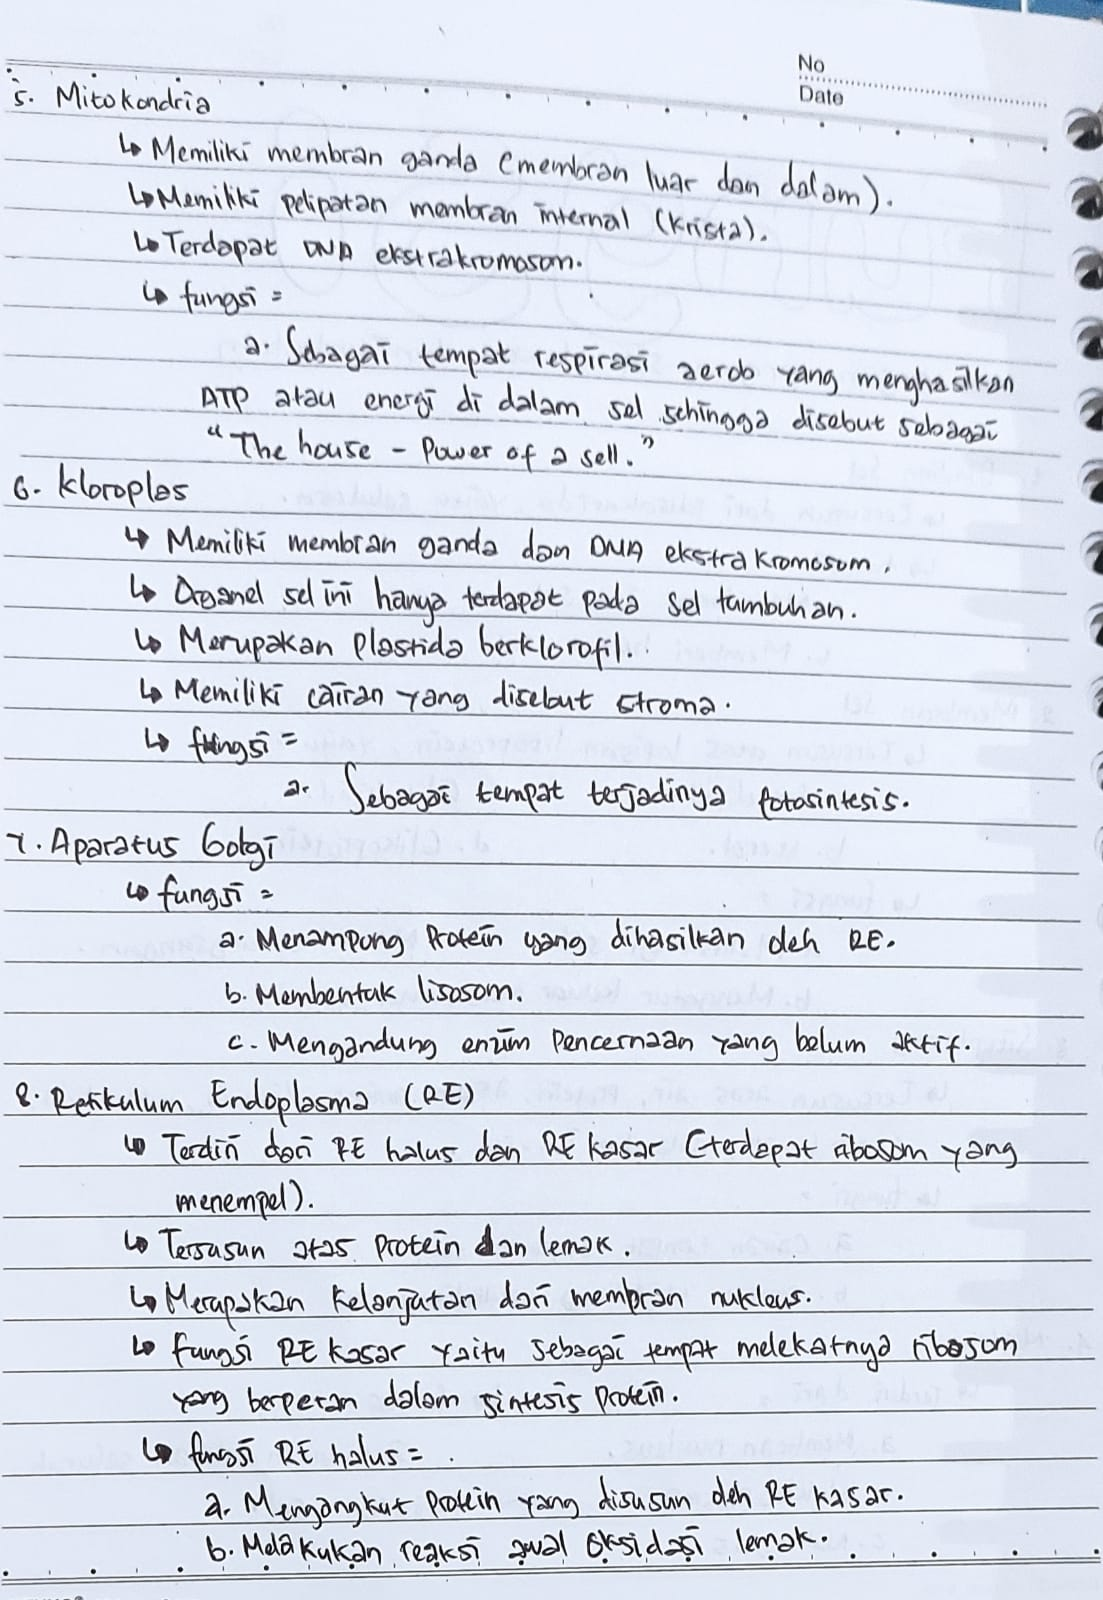 No
Date
5. Mitokondria
↳ Memiliki membran ganda (membran luar dan dalam).
↳ Memiliki pelipatan membran internal (Krista).
↳ Terdapat DNA ekstrakromosom.
↳ fungsi =
a. Sebagai tempat respirasi aerob yang menghasilkan
ATP atau energi di dalam sel sehingga disebut sebagai
"The house - Power of a sell."
6. Kloroplas
↳ Memiliki membran ganda dan DNA ekstrakromosom.
↳ Organel sel ini hanya terdapat pada sel tumbuhan.
↳ Merupakan Plastida berklorofil.
↳ Memiliki cairan yang disebut stroma.
↳ fungsi =
a. Sebagai tempat terjadinya fotosintesis.
7. Aparatus Golgi
↳ fungsi =
a. Menampung Protein yang dihasilkan oleh RE.
b. Membentuk lisosom.
c. Mengandung enzim Pencernaan yang belum aktif.
8. Retikulum Endoplasma (RE)
↳ Terdiri dari RE halus dan RE kasar (terdapat ribosom yang
menempel).
↳ Tersusun atas Protein dan lemak.
↳ Merupakan Kelanjutan dari membran nukleus.
↳ Fungsi RE kasar yaitu sebagai tempat melekatnya ribosom
yang berperan dalam sintesis Protein.
↳ fungsi RE halus =
a. Mengangkut Protein yang disusun oleh RE kasar.
b. Melakukan reaksi awal Oksidasi lemak.